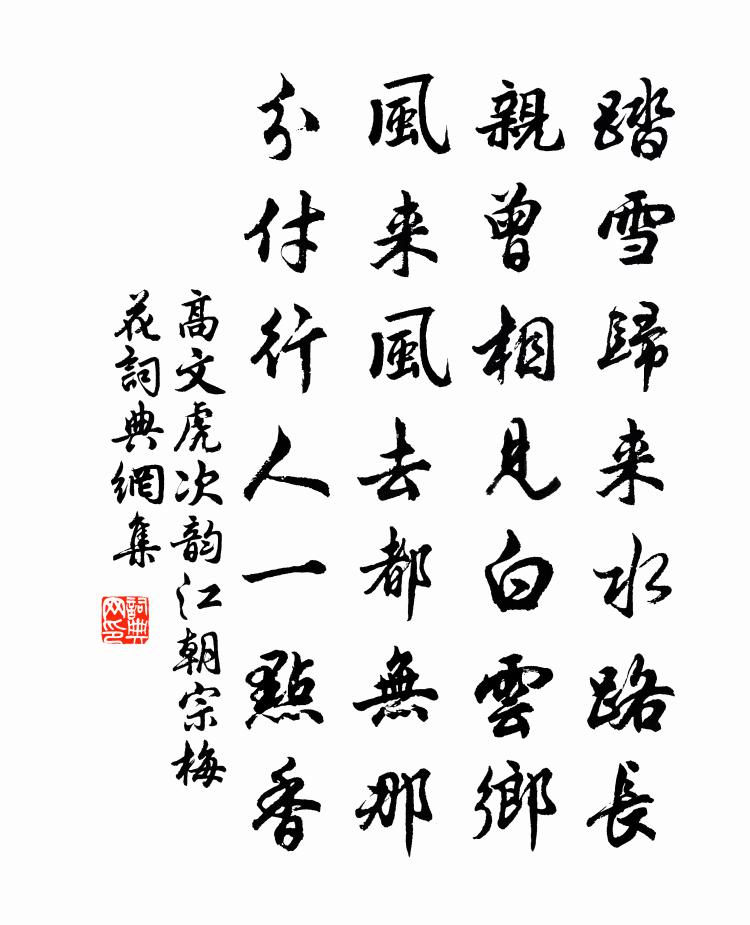 踏雪歸来水路長
親曾相見白雲鄉
風来風去都無那
分付行人一點香
高文虎次韵江朝宗梅
花詞典網集
詞典
网印